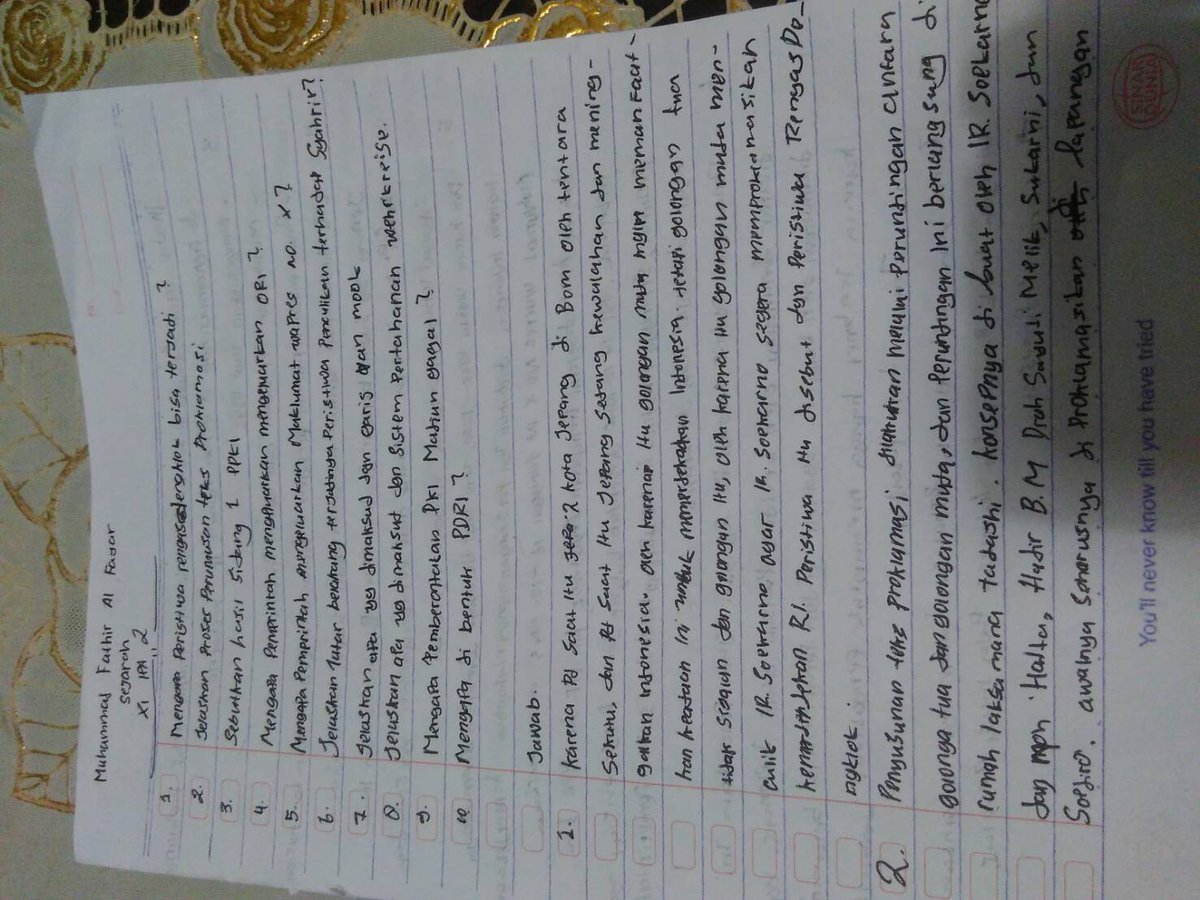 Muhammad Fathir Al Fajar
Sejarah
XI IPA 2
1. Mengapa Peristiwa rengasdengklok bisa terjadi ?
2. Jelaskan Proses Perumusan teks Proklamasi
3. Sebutkan hasil Sidang 1 PPKI
4. Mengapa Pemerintah mengeluarkan ORI ?
5. Mengapa Pemerintah mengeluarkan Maklumat wapres no. X ?
6. Jelaskan latar belakang terjadinya Peristiwa Penculikan terhadap Syahrir?
7. Jelaskan apa yg dimaksud dgn garis van mook
8. Jelaskan apa yg dimaksud dgn Sistem Pertahanan wehrkreise.
9. Mengapa Pemberontakan PKI Madiun gagal ?
10 Mengapa di bentuk PDRI ?
Jawab.
1. Karena Pd Saat itu 2 kota Jepang di Bom oleh tentara
Sekutu, dan Pd Saat itu Jepang sedang kewalahan dan mening-
galkan Indonesia. oleh karena itu golongan muda ingin memanfaat-
kan ini untuk memerdekakan Indonesia. tetapi golongan tua
tidak Sepaham dgn golongan itu, oleh karena itu golongan muda men-
culik IR. Soekarno agar IR. Soekarno Segera memproklamasikan
kemerdekaan RI. Peristiwa itu disebut dgn Peristiwa Rengas De-
ngklok.
2. Penyusunan teks Proklamasi dilakukan melalui Perundingan antara
golonga tua dan golongan muda, dan Perundingan ini berlangsung di
rumah laksamana tadashi. konsepnya di buat oleh IR. Soekarno
dan moh Hatta, Hadir B.M Diah Sayuti Melik, Sukarni, dan
Soediro. awalnya Seharusnya di Proklamasikan di lapangan
SINAR DUNIA
You'll never know till you have tried